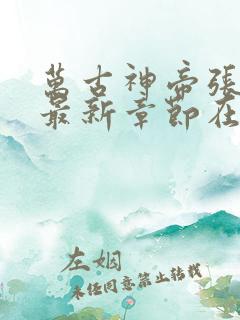 萬古神帝張
最新章節在
左姻
未经同意禁止转载